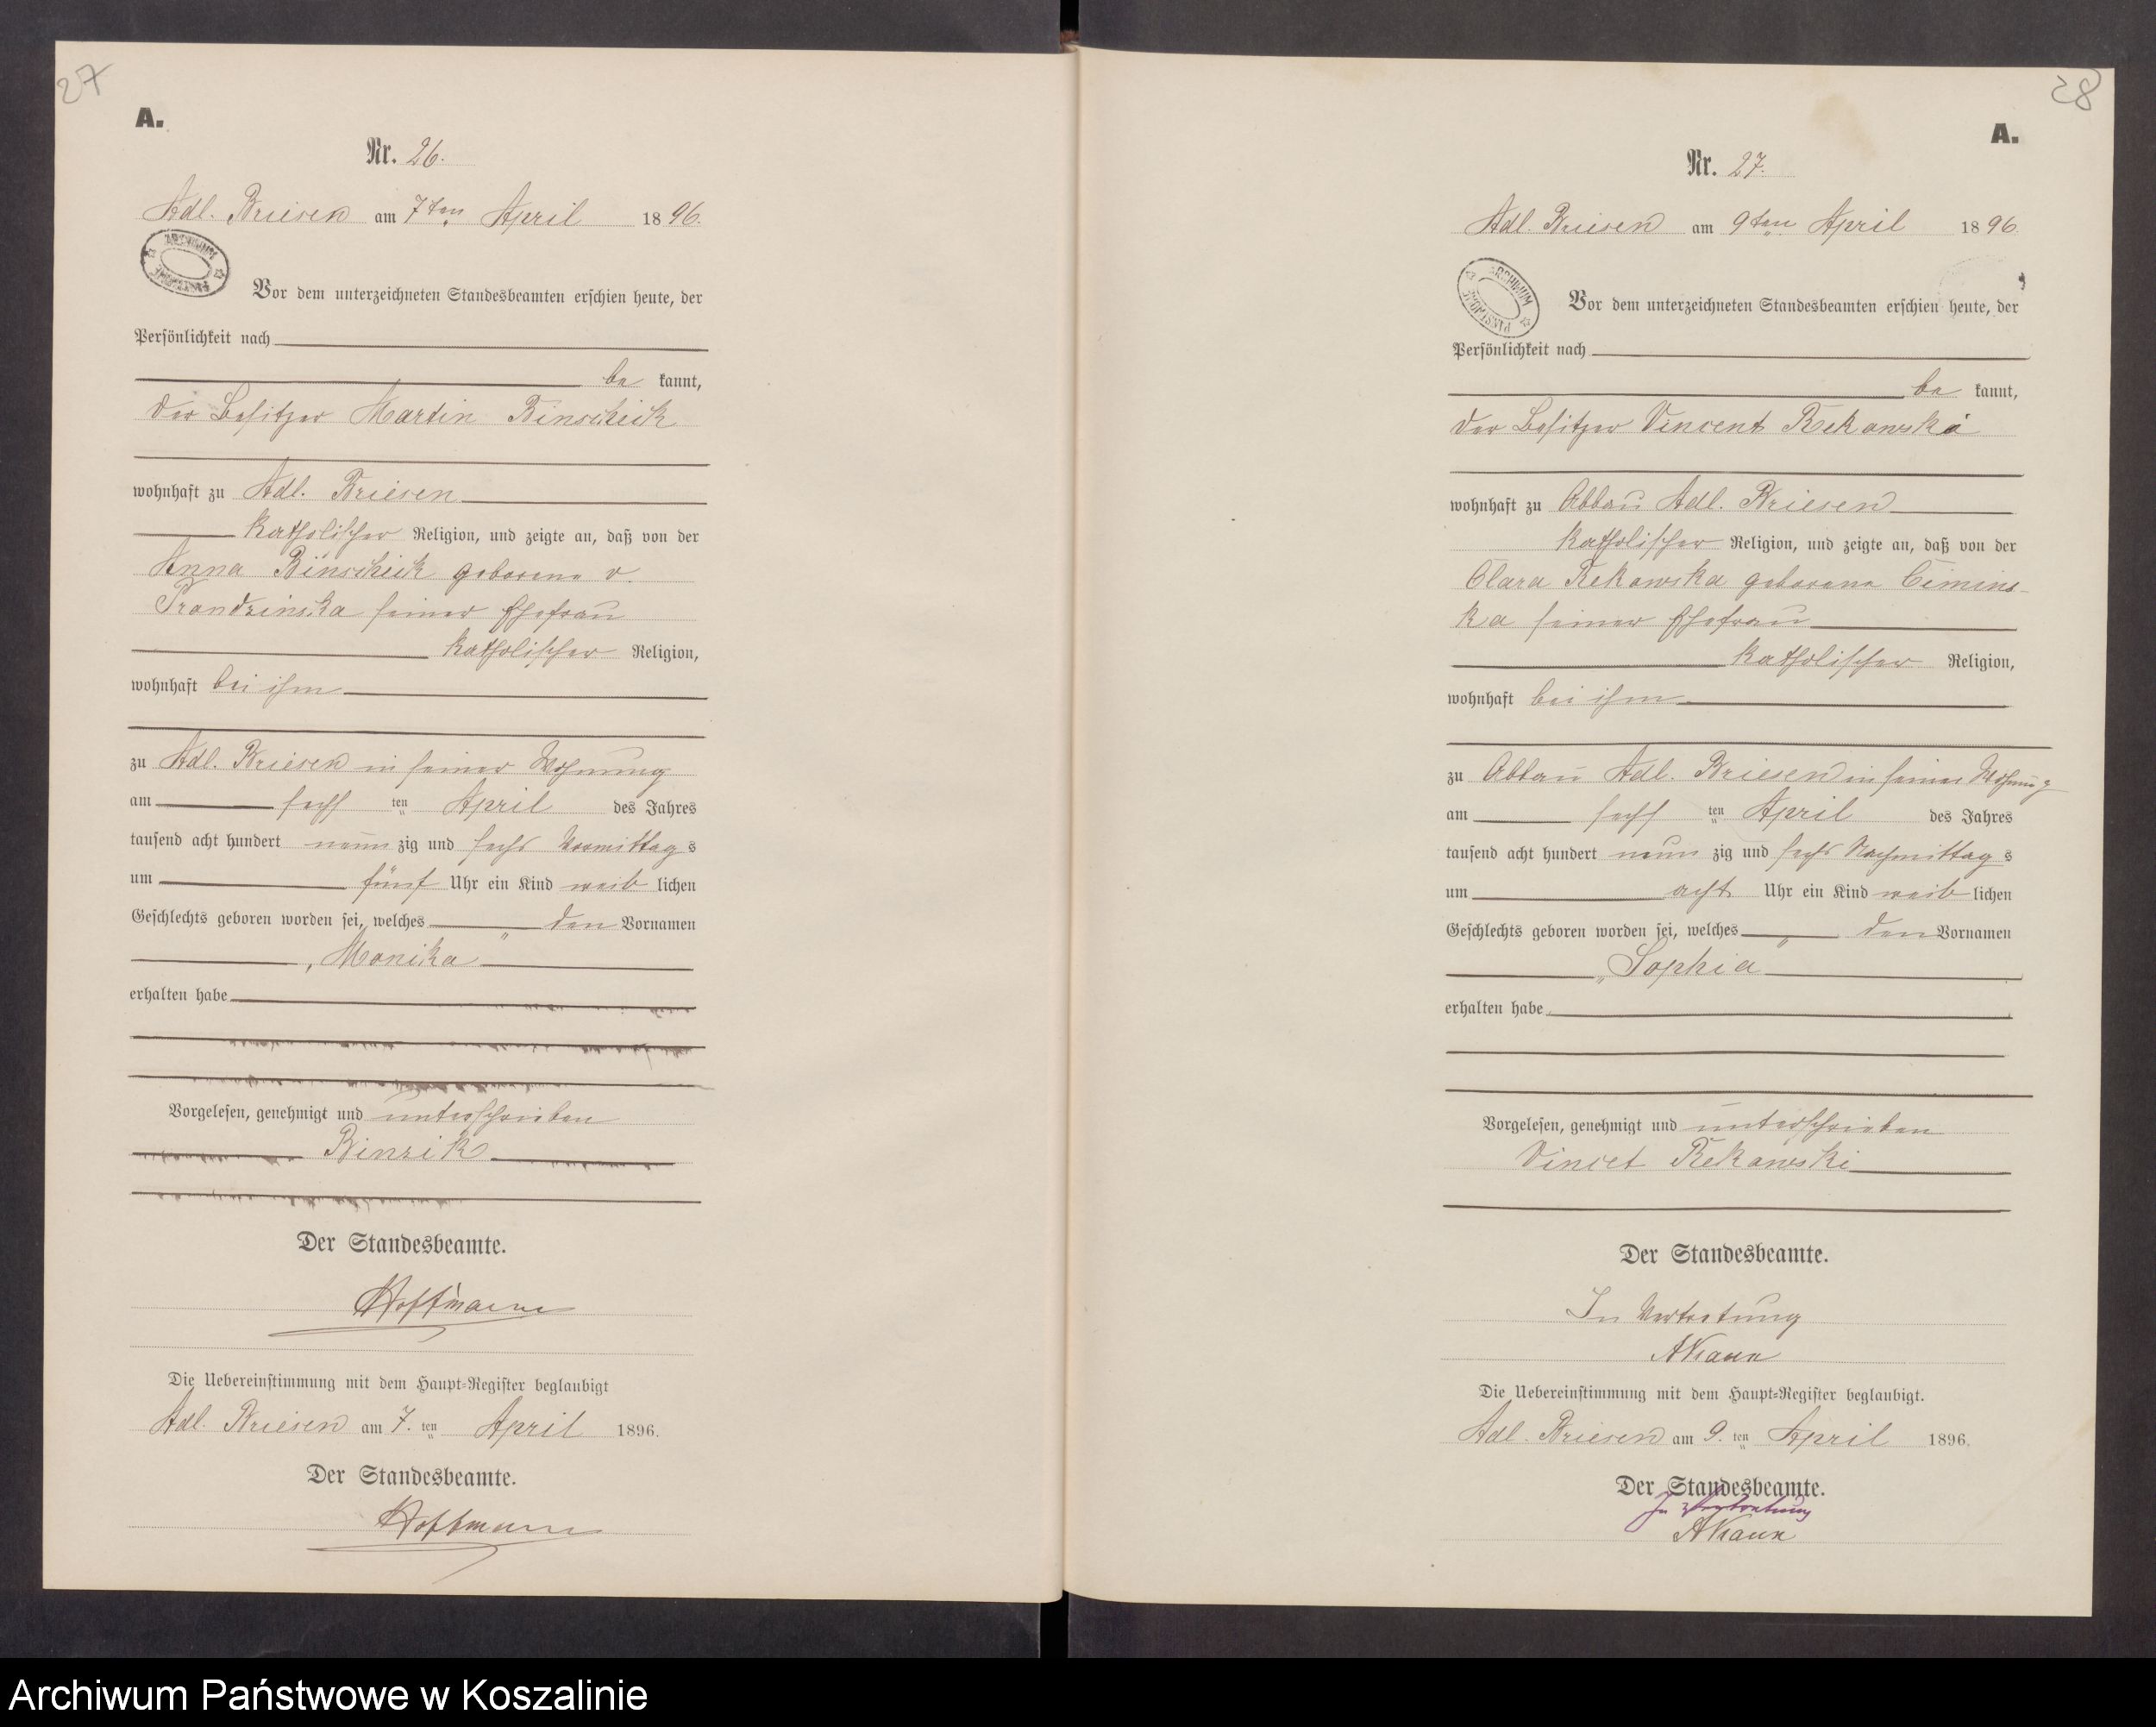 27
A.
Nr. 26.
Adl. Briesen am 7ten April 1896.
ARCHIWUM PAŃSTWOWE
Vor dem unterzeichneten Standesbeamten erschien heute, der
Persönlichkeit nach
be kannt,
der Besitzer Martin Binscheik
wohnhaft zu Adl. Briesen
katholischer Religion, und zeigte an, daß von der
Anna Binscheik geborene v.
Prondzinska seiner Ehefrau
katholischer Religion,
wohnhaft bei ihm
zu Adl. Briesen in seiner Wohnung
am sechsten April des Jahres
tausend acht hundert neun zig und sechs Vormittags
um fünf Uhr ein Kind weiblichen
Geschlechts geboren worden sei, welches den Vornamen
„Monika“
erhalten habe
Vorgelesen, genehmigt und unterschrieben
Binzik
Der Standesbeamte.
Hoffmann
Die Uebereinstimmung mit dem Haupt-Register beglaubigt
Adl. Briesen am 7. ten April 1896.
Der Standesbeamte.
Hoffmann
28
A.
Nr. 27.
Adl. Briesen am 9ten April 1896.
ARCHIWUM PAŃSTWOWE
Vor dem unterzeichneten Standesbeamten erschien heute, der
Persönlichkeit nach
be kannt,
der Besitzer Vincent Rekowski
wohnhaft zu Abbau Adl. Briesen
katholischer Religion, und zeigte an, daß von der
Clara Rekowska geborene Cimins-
ka seiner Ehefrau
katholischer Religion,
wohnhaft bei ihm
zu Abbau Adl. Briesen in seiner Wohnung
am sechsten April des Jahres
tausend acht hundert neun zig und sechs Nachmittags
um acht Uhr ein Kind weiblichen
Geschlechts geboren worden sei, welches den Vornamen
„Sophia“
erhalten habe
Vorgelesen, genehmigt und unterschrieben
Vincet Rekowski
Der Standesbeamte.
In Vertretung
Die Uebereinstimmung mit dem Haupt-Register beglaubigt.
Adl. Briesen am 9. ten April 1896.
Der Standesbeamte.
In Vertretung
Archiwum Państwowe w Koszalinie